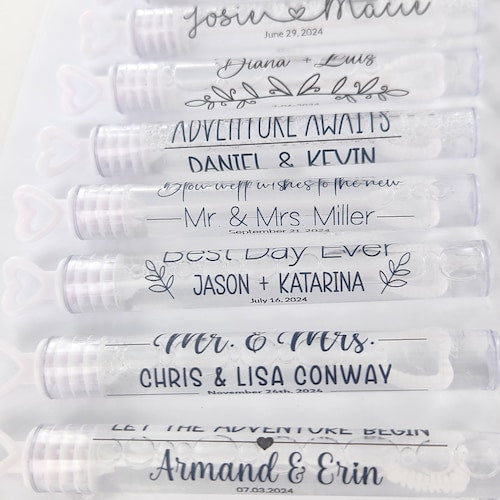 Josie Macie
June 29, 2024
Diana + Luis
ADVENTURE AWAITS
DANIEL & KEVIN
Blow well wishes to the new
Mr. & Mrs. Miller
September 21, 2024
Best Day Ever
JASON + KATARINA
July 16, 2024
Mr. & Mrs.
CHRIS & LISA CONWAY
November 26th, 2024
LET THE ADVENTURE BEGIN
Armand & Erin
07.03.2024